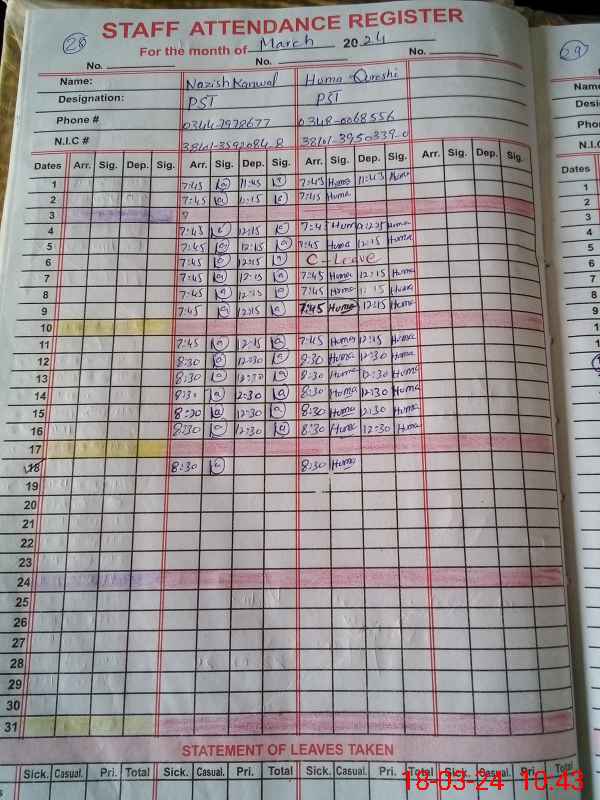 28
STAFF ATTENDANCE REGISTER
For the month of March 2024
No. No. No.
Name: Nazish Kanwal Huma Qureshi
Designation: PST PST
Phone # 0344-7978677 0348-0068556
N.I.C # 38101-3592084-8 38101-3950339-0
Dates Arr. Sig. Dep. Sig. Arr. Sig. Dep. Sig. Arr. Sig. Dep. Sig. Arr. Sig. Dep. Sig.
1 7:45 11:45 7:45 Huma 11:45 Huma
2 7:45 7:45 Huma
3
4 7:45 12:15 7:45 Huma 12:15 Huma
5 7:45 12:15 7:45 Huma 12:15 Huma
6 7:45 12:15 C-Leave
7 7:45 12:15 7:45 Huma 12:15 Huma
8 7:45 12:15 7:45 Huma 12:15 Huma
9 7:45 12:15 7:45 Huma 12:15 Huma
10
11 7:45 12:15 7:45 Huma 12:15 Huma
12 8:30 12:30 8:30 Huma 12:30 Huma
13 8:30 12:30 8:30 Huma 12:30 Huma
14 8:30 12:30 8:30 Huma 12:30 Huma
15 8:30 12:30 8:30 Huma 12:30 Huma
16 8:30 12:30 8:30 Huma 12:30 Huma
17
18 8:30 8:30 Huma
19
20
21
22
23
24
25
26
27
28
29
30
31
STATEMENT OF LEAVES TAKEN
Sick. Casual. Pri. Total Sick. Casual. Pri. Total Sick. Casual. Pri. Total Sick. Casual. Pri. Total
29
Name
Phon
N.I.C
Dates
1
2
3
4
5
6
7
8
9
10
11
18-03-24 10:43